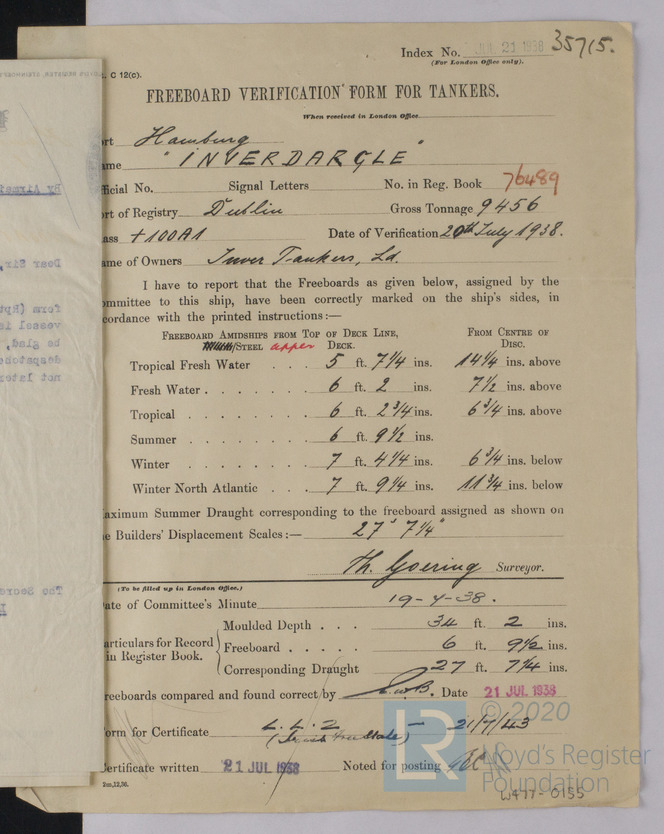 Index No. JUL 21 1938 35715.
(For London Office only).
C 12(c).
FREEBOARD VERIFICATION FORM FOR TANKERS.
When received in London Office
rt Hamburg
ame "INVERDARGLE"
ficial No. Signal Letters No. in Reg. Book 76489
ort of Registry Dublin Gross Tonnage 9456
ass +100A1 Date of Verification 20th July 1938.
ame of Owners Inver Tankers, Ld.
I have to report that the Freeboards as given below, assigned by the
ommittee to this ship, have been correctly marked on the ship's sides, in
cordance with the printed instructions:—
FREEBOARD AMIDSHIPS FROM TOP OF DECK LINE, FROM CENTRE OF
/STEEL upper DECK. DISC.
Tropical Fresh Water . . . 5 ft. 7 1/4 ins. 14 1/4 ins. above
Fresh Water . . . . . . . 6 ft. 2 ins. 7 1/2 ins. above
Tropical . . . . . . . . 6 ft. 2 3/4 ins. 6 3/4 ins. above
Summer . . . . . . . . 6 ft. 9 1/2 ins.
Winter . . . . . . . . 7 ft. 4 1/4 ins. 6 3/4 ins. below
Winter North Atlantic . . . 7 ft. 9 1/4 ins. 11 3/4 ins. below
aximum Summer Draught corresponding to the freeboard assigned as shown on
e Builders' Displacement Scales:— 27' 7 1/4"
Th. Goering Surveyor.
(To be filled up in London Office.)
ate of Committee's Minute 19-7-38.
articulars for Record in Register Book.
Moulded Depth . . . 34 ft. 2 ins.
Freeboard . . . . . 6 ft. 9 1/2 ins.
Corresponding Draught 27 ft. 7 1/4 ins.
reeboards compared and found correct by Date 21 JUL 1938
orm for Certificate L.L.2 — 21/7/43
(Irish Free State)
ertificate written 21 JUL 1938 Noted for posting
2m,12,36.
© 2020
LR Lloyd's Register
Foundation
W477-0155
By Airmail
Dear Sir,
form (Rpt
vessel is
be glad,
despatche
not later
The Secre